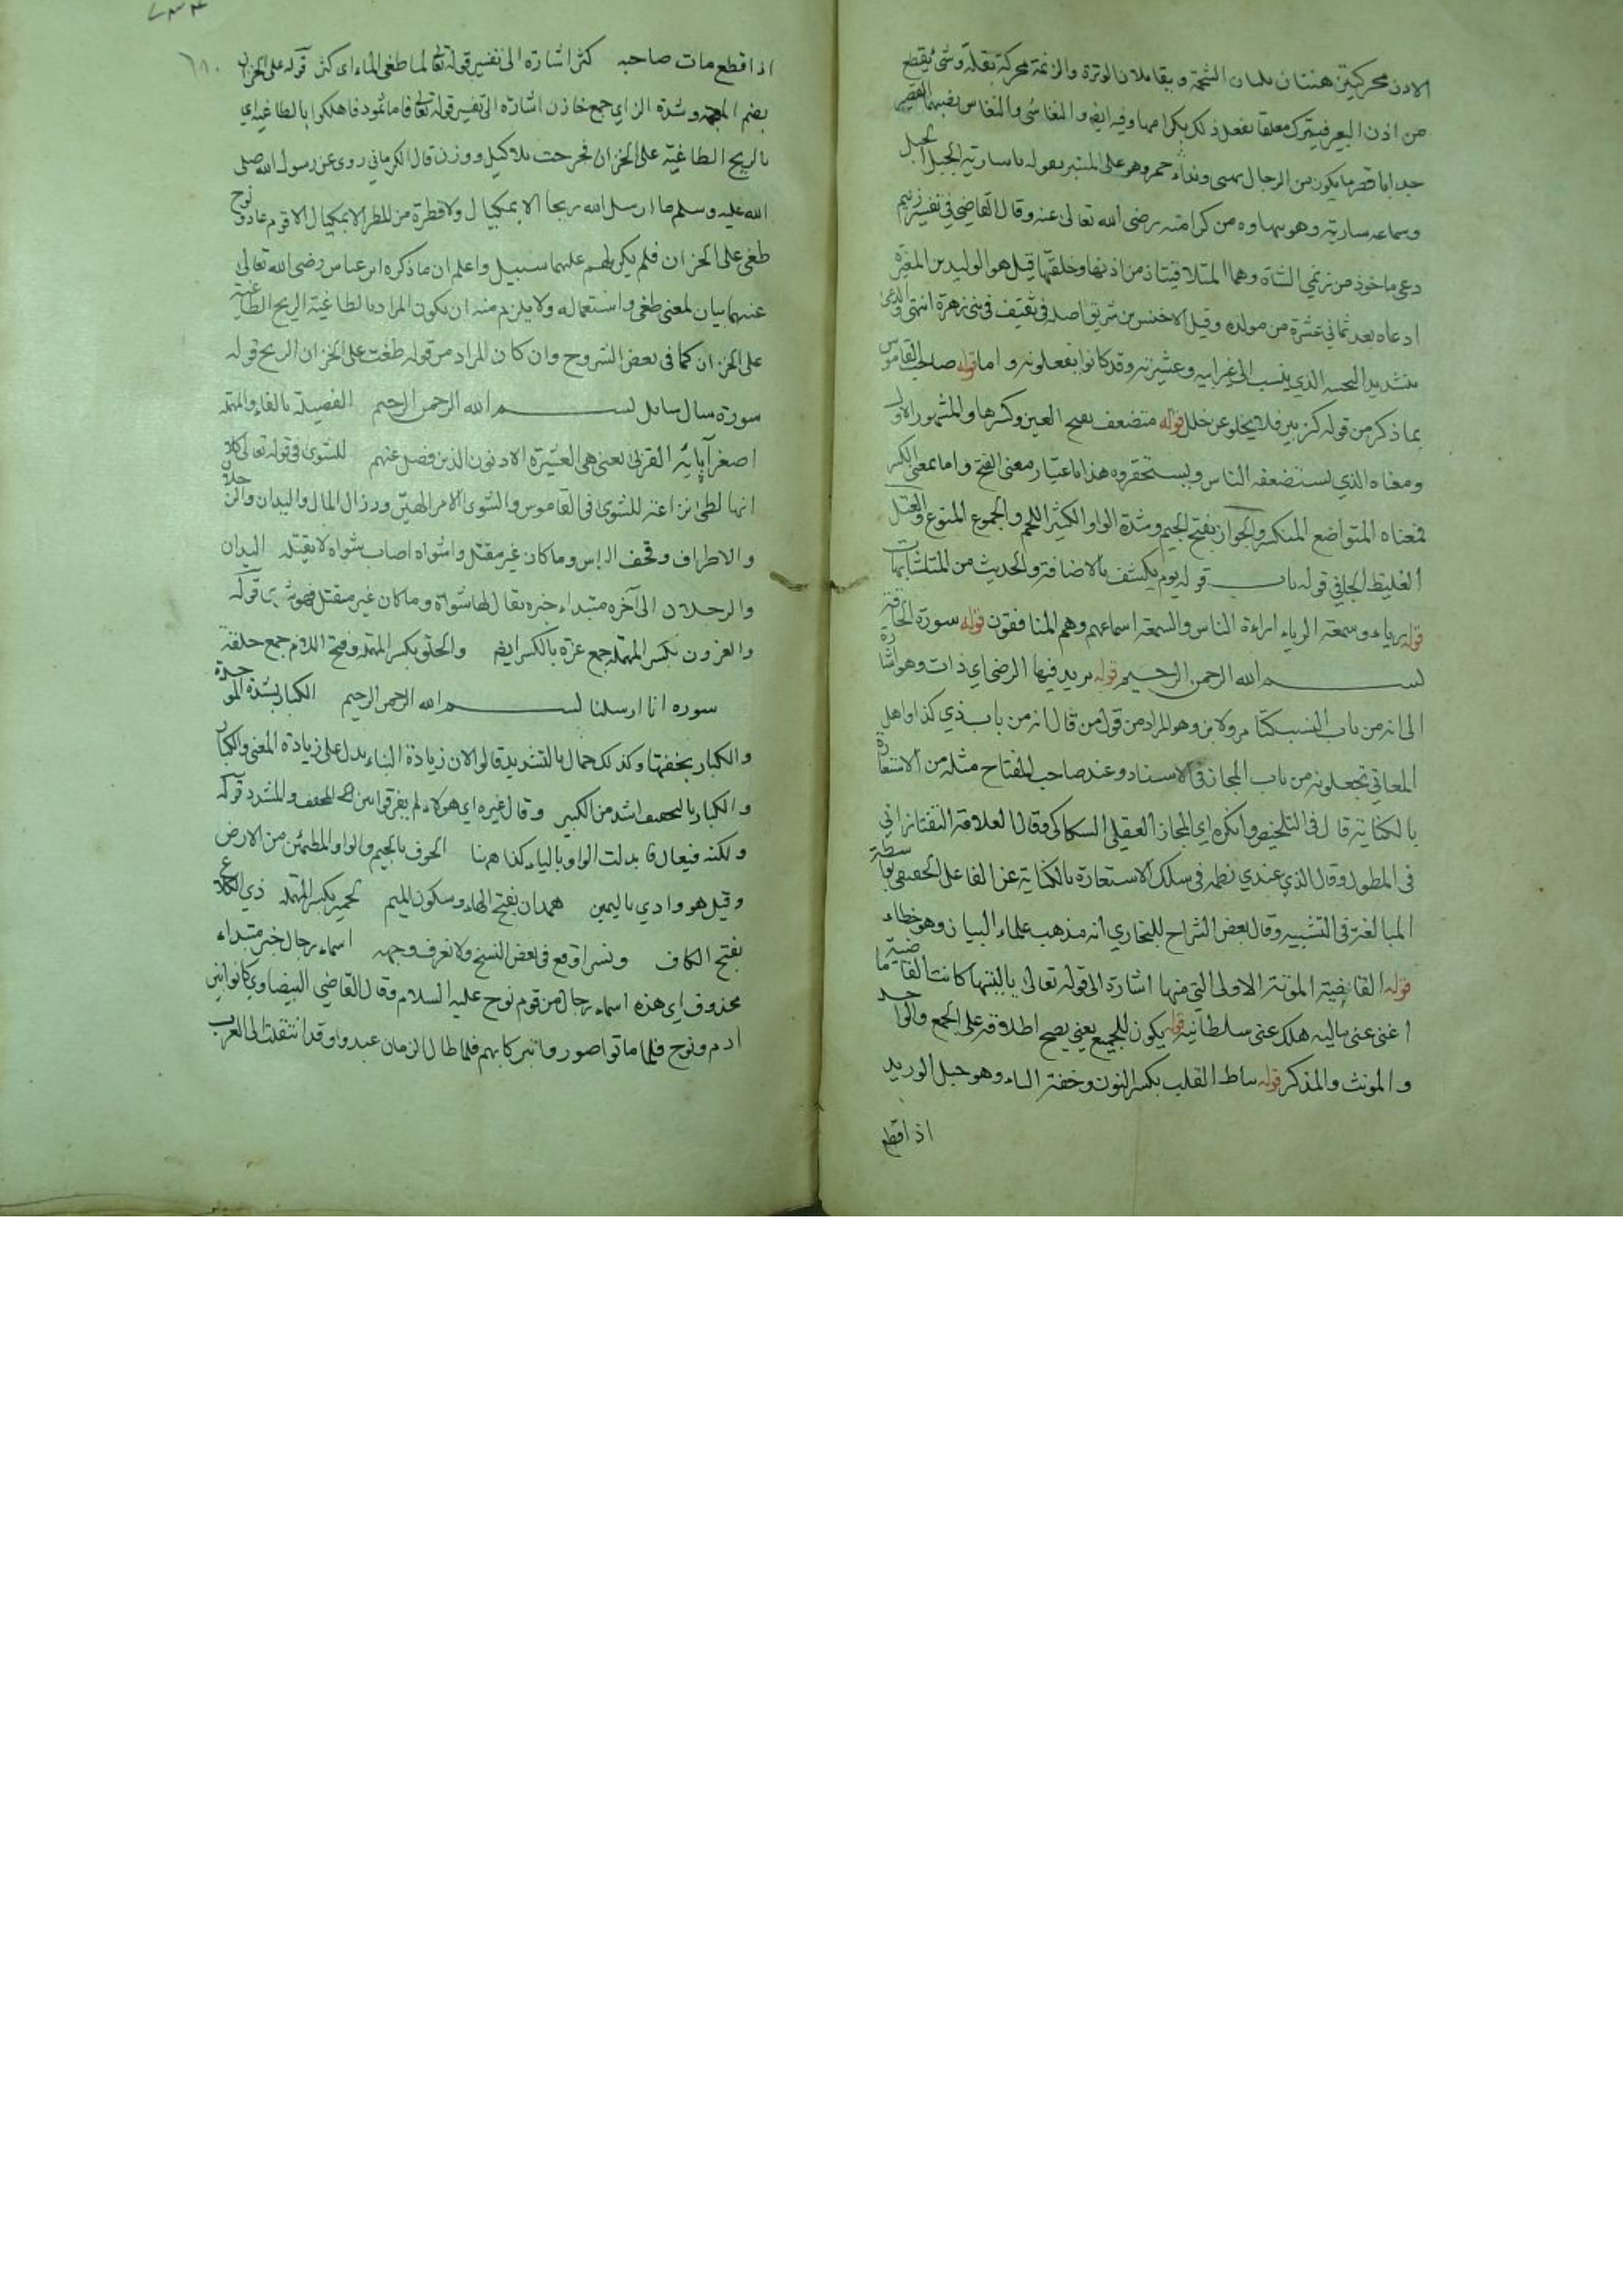 الاذن محركتين هنتان يليان الشحمة ويقابلان الوترة والزنمة محركة بقلة وشئ يقطع
من اذن البعير فيترك معلقا يفعل ذلك بكرامها وفيه ايضا والنغاشي والنغاش بضمهما القصير
جدا اقصر ما يكون من الرجال ونداء عمر وهو على المنبر بقوله يا سارية الجبل الجبل
وسماعه سارية وهو بنهاوند من كرامته رضى الله تعالى عنه وقال القاضي في تفسير زنيم
دعي ماخوذ من زنمتي الشاة وهما المتدليتان من اذنها وحلقها قيل هو الوليد بن المغيرة
ادعاه بعد ثماني عشرة من مولده وقيل الاخنس بن شريق اصله في ثقيف في بني زهرة انتهى والدعي
بتشديد التحتية الذي ينسب الى غير ابيه وعشيرته وقد كانوا يفعلونه واما قوله صاحب القاموس
بما ذكر من قوله كزنيم فلا يخلو عن خلل قوله متضعف بفتح العين وكسرها والمشهور الاول
ومعناه الذي يستضعفه الناس ويستحقروه هذا باعتبار معنى الفتح واما بمعنى الكسر
فمعناه المتواضع المنكسر والجواز بفتح الجيم وشدة الواو الكثير اللحم والجموع المنوع والعتل
الغليظ الجافي قوله باب قوله يوم يكشف بالاضافة والحديث من المتشابهات
قوله رياء وسمعة الرياء اراءة الناس والسمعة اسماعهم وهم المنافقون قوله سورة الحاقة
بسم الله الرحمن الرحيم قوله يريد فيها الرضى اي ذات وهو اشارة
الى انه من باب النسب كتامر ولابن وهو المراد من قول من قال انه من باب ذي كذا واهل
المعاني تجعلونه من باب المجاز في الاسناد وعند صاحب المفتاح مثله من الاستعارة
بالكناية قال في التلخيص وانكره اي المجاز العقلي السكاكي وقال العلامة التفتازاني
في المطول وقال الذي عندي نظمه في سلك الاستعارة بالكناية عن الفاعل الحقيقي بواسطة
المبالغة في التشبيه وقال بعض الشراح للبخاري انه مذهب علماء البيان وهو خطاء
قوله القاضية الموتة الاولى التي منها اشارة الى قوله تعالى يا ليتها كانت القاضية ما
اغنى عنى ماليه هلك عنى سلطانيه قوله يكون للجميع يعني يصح اطلاقه على الجمع والواحد
والمونث والمذكر قوله نياط القلب بكسر النون وخفة الياء وهو حبل الوريد
اذا قطع
اذا قطع مات صاحبه كثر اشارة الى تفسير قوله تعالى لما طغى الماء اى كثر قوله على الخزان
بضم المعجمة وشدة الزاي جمع خازن اشارة الى تفسير قوله تعالى فاما ثمود فاهلكوا بالطاغية اي
بالريح الطاغية على الخزان فخرجت بلا كيل ووزن قال الكرماني روى عن رسول الله صلى
الله عليه وسلم ما ارسل الله ريحا الا بمكيال ولا قطرة من المطر الا بمكيال الا قوم عاد ونوح
طغى على الخزان فلم يكن لهم عليهما سبيل واعلم ان ما ذكره ابن عباس رضى الله تعالى
عنهما بيان لمعنى طغى واستعماله ولا يلزم منه ان يكون المراد بالطاغية الريح الطاغية
على الخزان كما في بعض الشروح وان كان المراد من قوله طغت على الخزان الريح قوله
سورة سال سايل بسم الله الرحمن الرحيم الفصيلة بالفاء والمهملة
اصغر آبائه القربى يعنى هي العشيرة الادنون الذين فصل عنهم للشوى في قوله تعالى كلا
انها لظى نزاعة للشوى في القاموس والشوى الامر الهين ورذال المال واليدان والرجلان
والاطراف وقحف الراس وما كان غير مقتل واشواه اصاب شواه لا مقتله اليدان
والرجلان الى آخره مبتداء خبره يقال لها شواة وما كان غير مقتل فهو شوى قوله
والعزون بكسر المهملة جمع عزة بالكسر ايضا والحلق بكسر المهملة وفتح اللام جمع حلقة
سورة انا ارسلنا بسم الله الرحمن الرحيم الكبار بشدة الموحدة
والكبار بخفتها وكذلك جمال بالتشديد قالوا لان زيادة البناء يدل على زيادة المعنى والكبار
والكبار بالتخفيف اشد من الكبير وقال غيره اي هؤلاء لم يفرقوا بين المخفف والمشدد قوله
ولكنه فيعال قا بدلت الواو بالياء كذا هرنا الجوف بالجيم والواو المطمئن من الارض
وقيل هو وادي باليمين همدان بفتح الهاء وسكون الميم لحمير بكسر المهملة ذي الكلاع
بفتح الكاف ونسرا وقع في بعض النسخ ولا نعرف وجهه اسماء رجال خبر مبتداء
محذوف اي هذه اسماء رجال من قوم نوح عليه السلام وقال القاضي البيضاوي كانوا بين
ادم ونوح فلما ماتوا صوروا تبركا بهم فلما طال الزمان عبدوا وقد انتقلت الى العرب